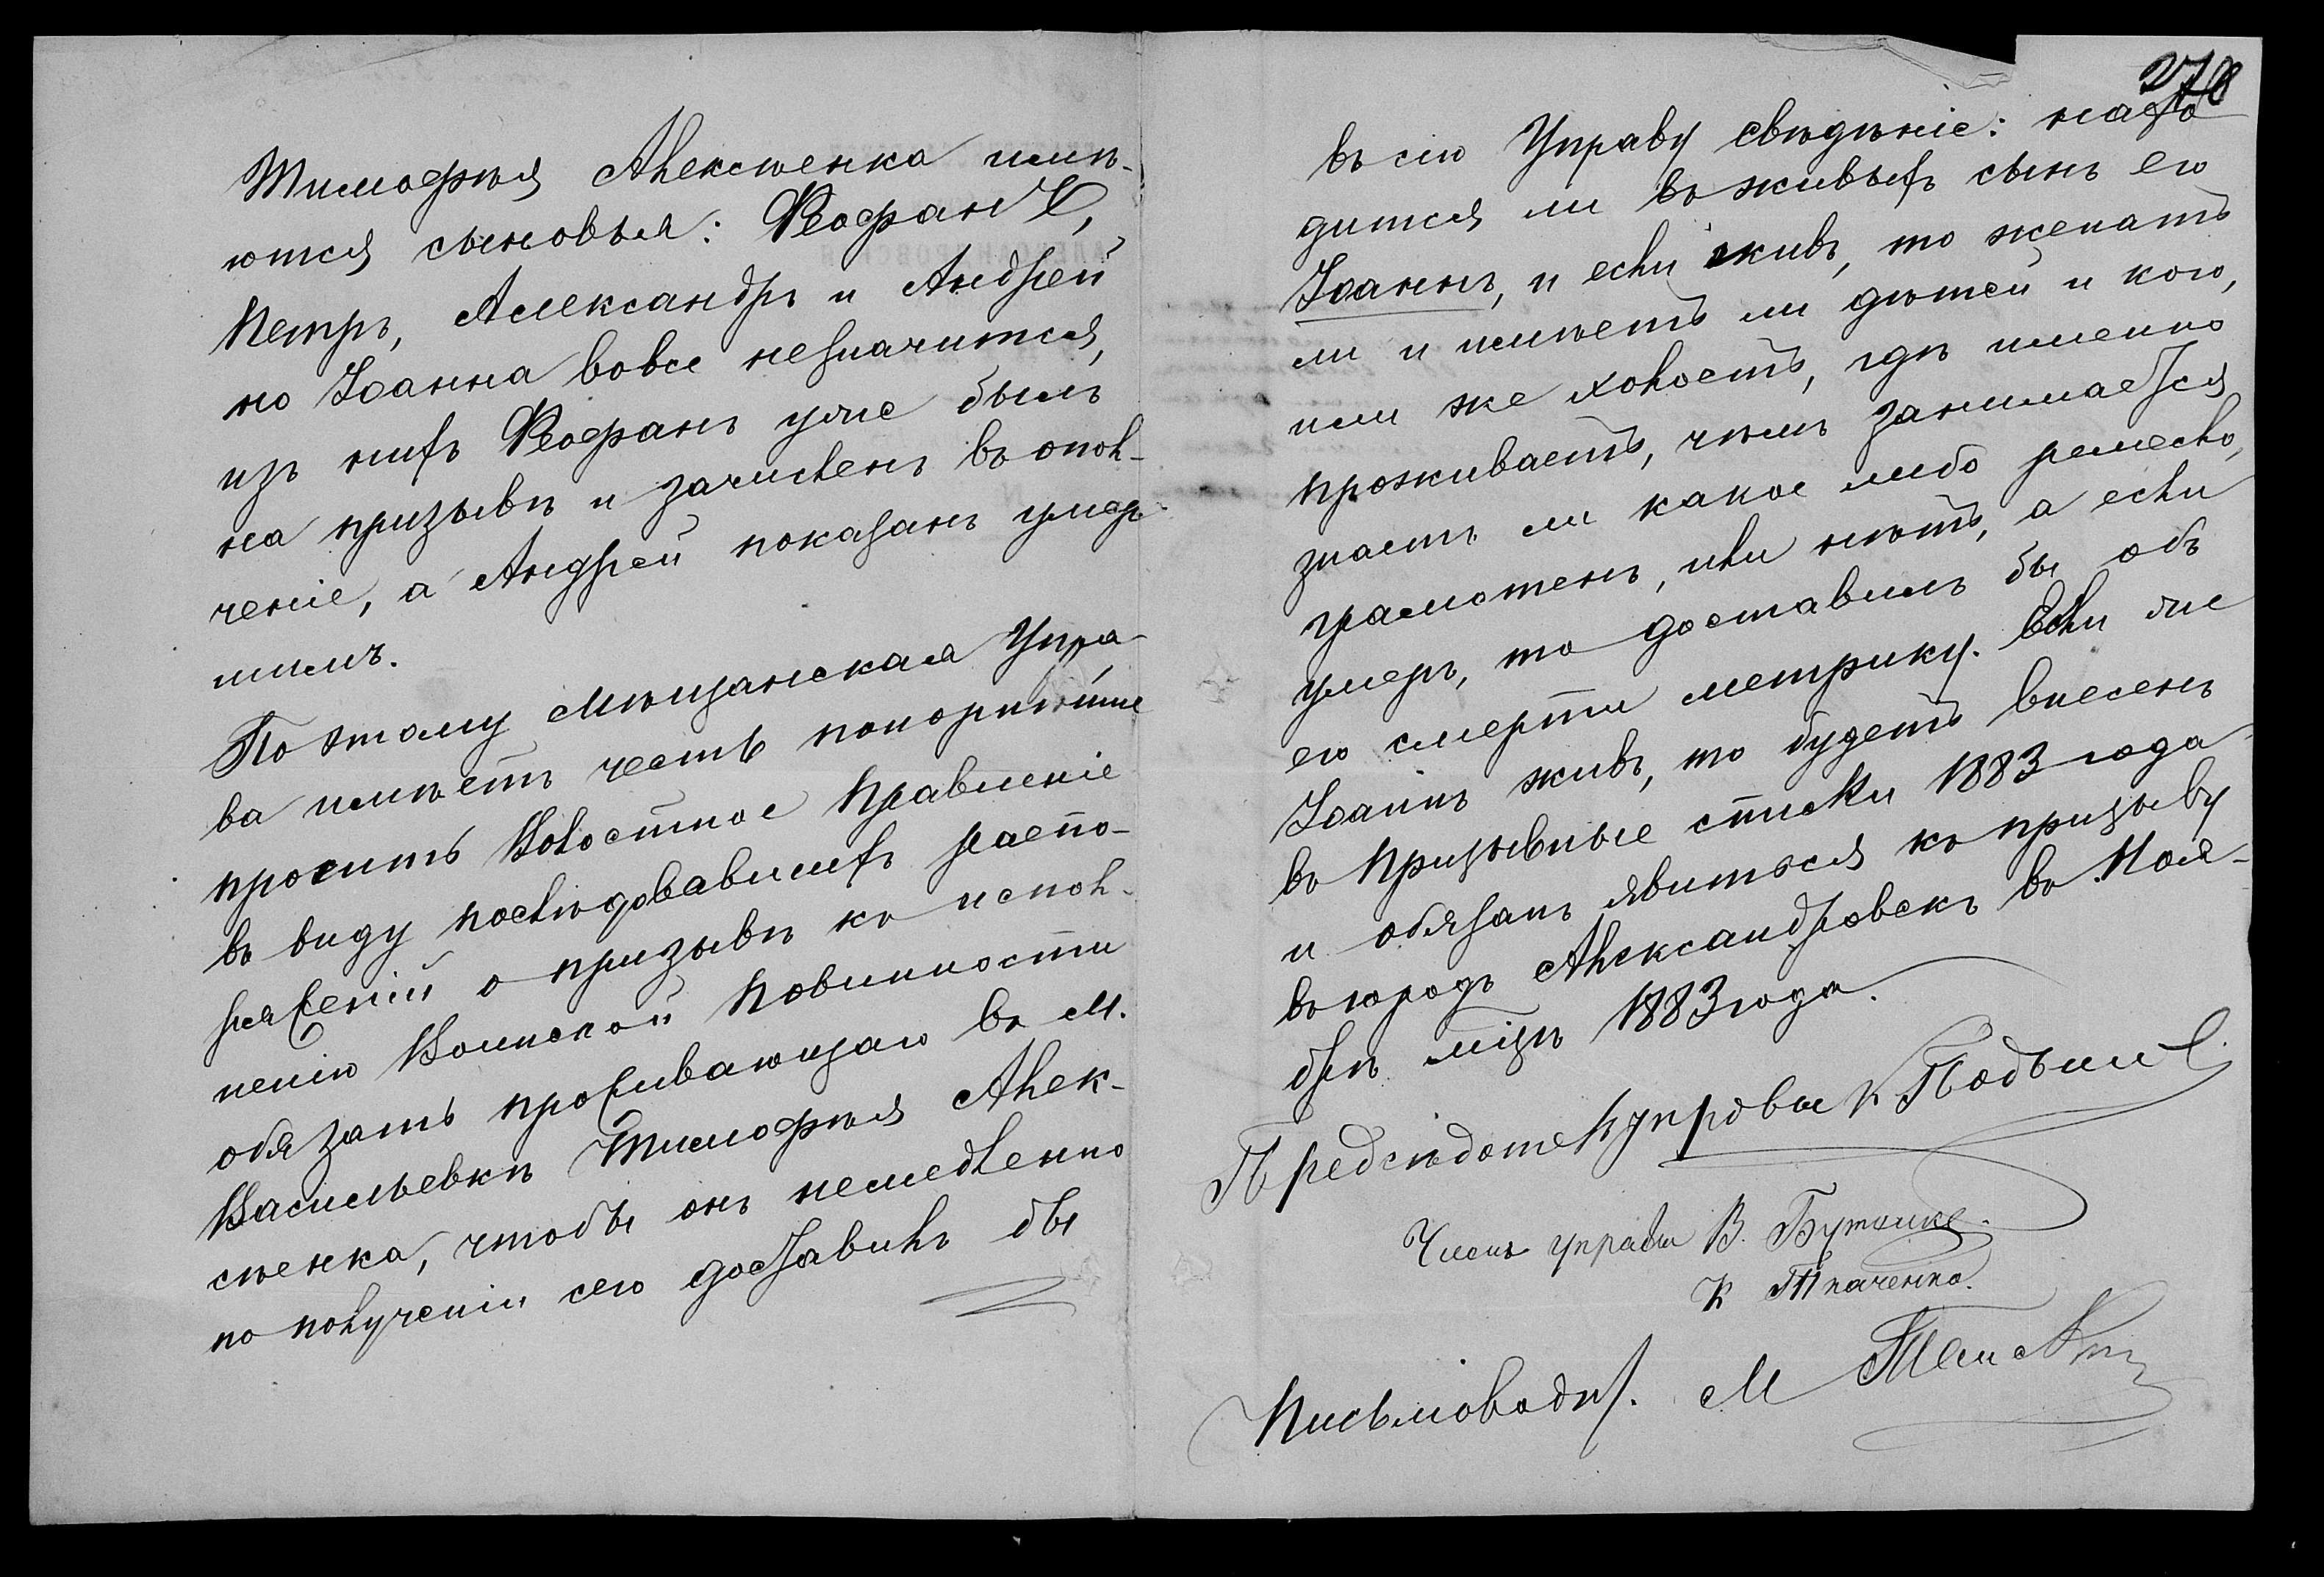 Тимофѣя Алексѣенка имѣ-
ются сыновья: Феофанъ,
Петръ, Александръ и Андрей
но Іоанна вовсе незначится,
изъ нихъ Феофанъ уже былъ
на призывѣ и зачисленъ въ опол-
ченіе, а Андрей показанъ умер-
шимъ.
Поэтому Мѣщанская Упра-
ва имѣетъ честь покорнѣйше
просить Волостное Правленіе
въ виду послѣдовавшихъ распо-
ряженій о призывѣ къ испол-
ненію Воинской повинности
обязать проживающаго въ М.
Васильевкѣ Тимофѣя Алек-
сѣенка, чтобы онъ немедленно
по полученіи сего доставилъ бы
278
въ сію Управу свѣдѣніе: нахо
дится ли въ живыхъ сынъ его
Іоаннъ, и если живъ, то женатъ
ли и имѣетъ ли дѣтей и кого,
или же холостъ, гдѣ именно
проживаетъ, чѣмъ занимается,
знаетъ ли какое либо ремесло,
грамотенъ, или нѣтъ, а если
умеръ, то доставилъ бы объ
его смерти метрику. Если же
Іоаннъ живъ, то будетъ внесенъ
въ призывные списки 1883 года
и обязанъ явиться къ призыву
въ городъ Александровскъ въ Ноя-
брѣ мцѣ 1883 года.
Предсѣдатель управы К
Членъ управы В.
К Ткаченко.
Письмовод. М